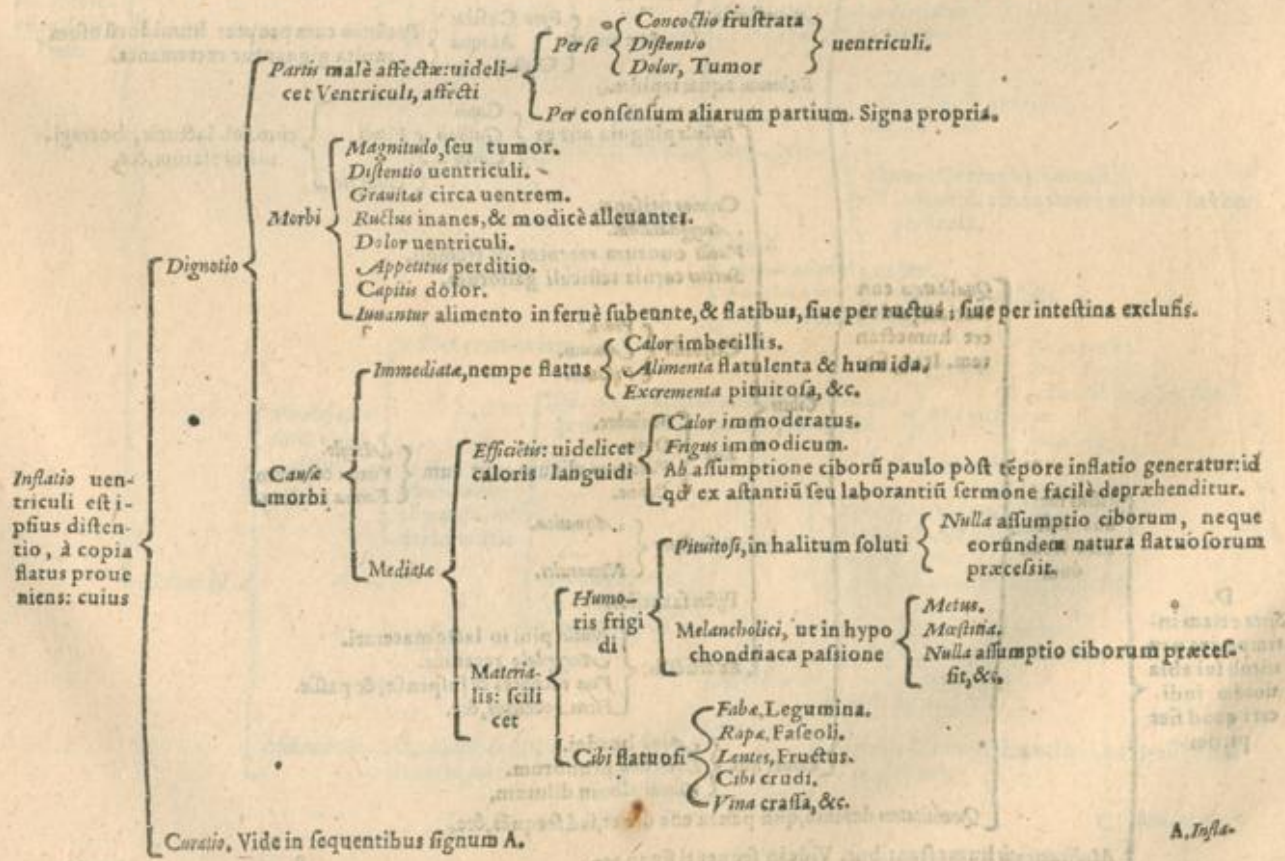 Inflatio uen-
triculi est i-
psius disten-
tio, à copia
flatus proue
niens: cuius
Dignotio
Partis malè affectæ: uideli-
cet Ventriculi, affecti
Per se
Concoctio frustrata
Distentio
Dolor, Tumor
uentriculi.
Per consensum aliarum partium. Signa propria.
Morbi
Magnitudo, seu tumor.
Distentio uentriculi.
Grauitas circa uentrem.
Ructus inanes, & modicè alleuantes.
Dolor uentriculi.
Appetitus perditio.
Capitis dolor.
Iuuantur alimento inferuè subeunte, & flatibus, siue per ructus; siue per intestina exclusis.
Causæ
morbi
Immediatæ, nempe flatus
Calor imbecillis.
Alimenta flatulenta & humida.
Excrementa pituitosa, &c.
Mediatæ
Efficiētis: uidelicet
caloris languidi
Calor immoderatus.
Frigus immodicum.
Ab assumptione ciborū paulo pòst tēpore inflatio generatur: id
qd ex astantiū seu laborantiū sermone facilè depræhenditur.
Materia-
lis: scili
cet
Humo-
ris frigi
di
Pituitosi, in halitum soluti
Nulla assumptio ciborum, neque
eorundem natura flatuosorum
præcessit.
Melancholici, ut in hypo
chondriaca passione
Metus.
Mæstitia.
Nulla assumptio ciborum præces.
sit, &c.
Cibi flatuosi
Fabæ, Legumina.
Rapæ, Faseoli.
Lentes, Fructus.
Cibi crudi.
Vina crassa, &c.
Curatio. Vide in sequentibus signum A.
A. Infla-